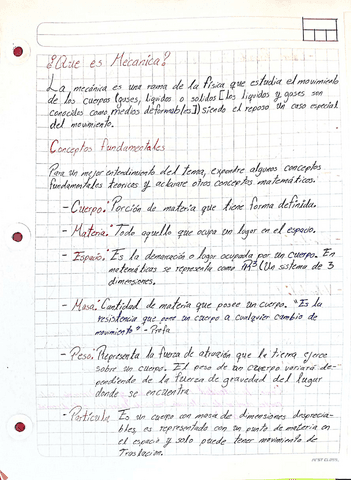 ¿Que es Mecánica?
La mecánica es una rama de la física que estudia el movimiento
de los cuerpos (gases, liquidos o solidos [los liquidos y gases son
conocidos como medios deformables]) siendo el reposo un caso especial
del movimiento.
Conceptos Fundamentales
Para un mejor entendimiento del tema, expondre algunos conceptos
fundamentales teoricos y aclarare otros conceptos matemáticos.
- Cuerpo: Porción de materia que tiene forma definida.
- Materia: Todo aquello que ocupa un lugar en el espacio.
- Espacio: Es la denonación o lugar ocupada por un cuerpo. En
matemáticas se representa como ℝ³ (Un sistema de 3
dimensiones.
- Masa: Cantidad de materia que posee un cuerpo. "Es la
resistencia que pone un cuerpo a cualquier cambio de
movimiento" - Profa
- Peso: Representa la fuerza de atracción que la tierra ejerce
sobre un cuerpo. El peso de un cuerpo variará de-
pendiendo de la fuerza de gravedad del lugar
donde se encuentra
- Partícula: Es un cuerpo con masa de dimensiones desprecia-
bles, es representado con un punto de materia en
el espacio y solo puede tener movimiento de
Traslacion.